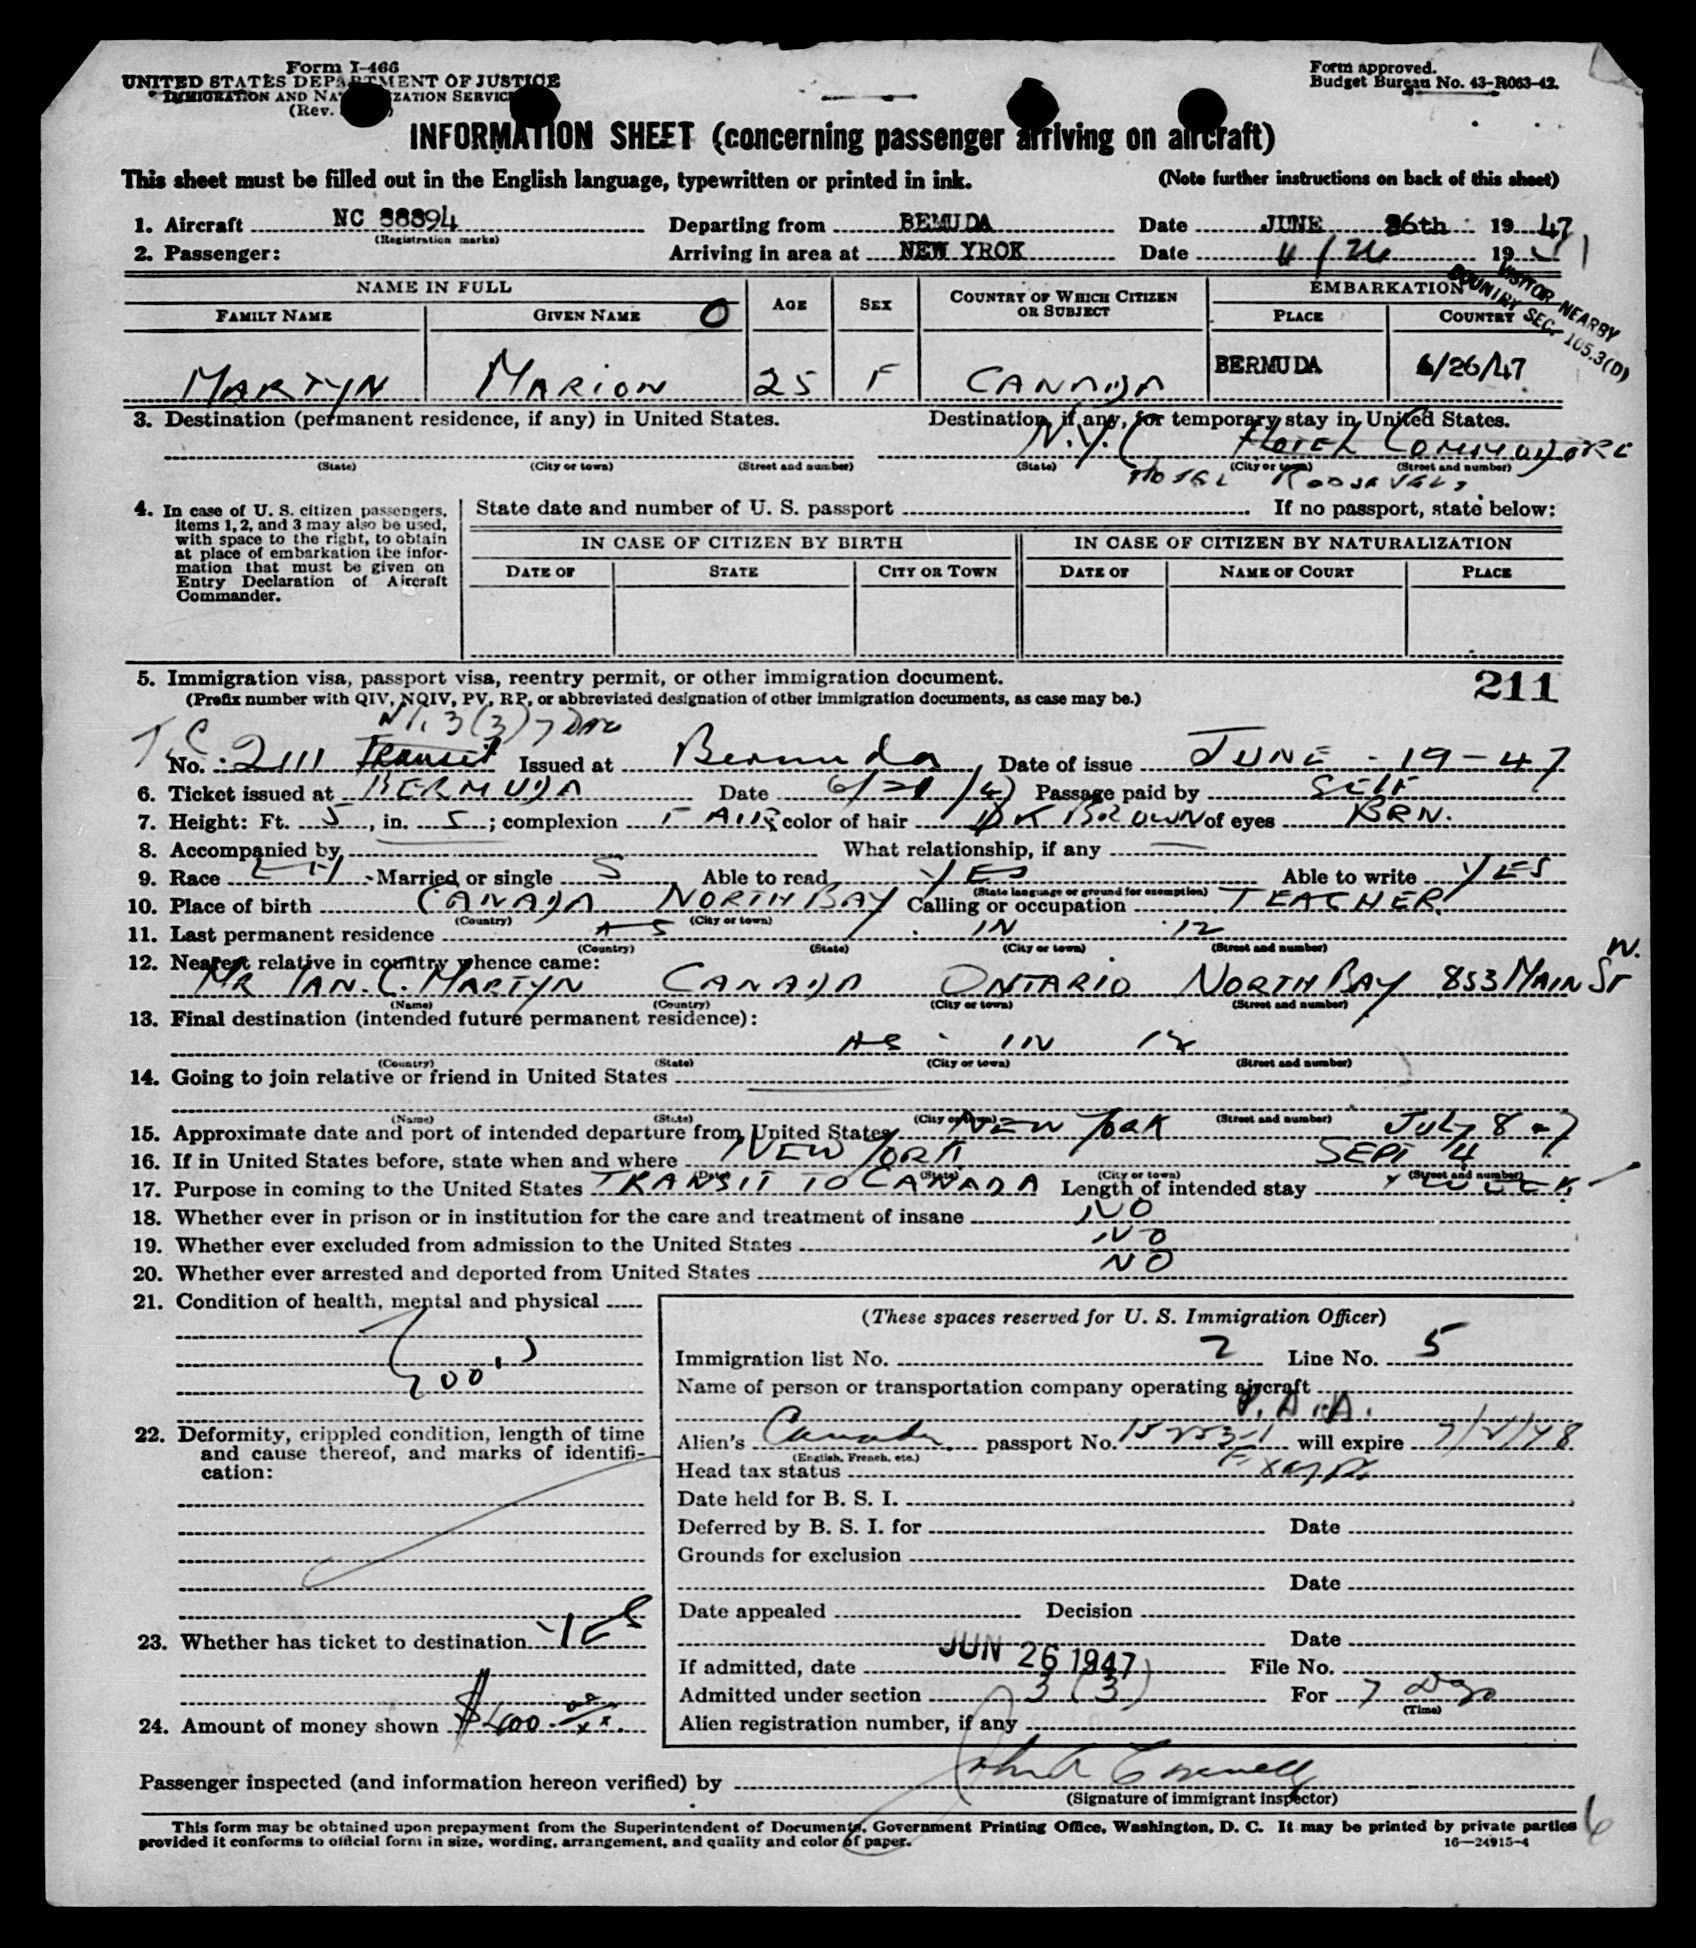 Form I-466
UNITED STATES DEPARTMENT OF JUSTICE
IMMIGRATION AND NATURALIZATION SERVICE
(Rev.
Form approved.
Budget Bureau No. 43-R063-42.
INFORMATION SHEET (concerning passenger arriving on aircraft)
This sheet must be filled out in the English language, typewritten or printed in ink. (Note further instructions on back of this sheet)
1. Aircraft NC 88894 Departing from BEMUDA Date JUNE 26th 1947
(Registration marks)
2. Passenger: Arriving in area at NEW YROK Date 19
VISITOR NEARBY
COUNTRY SEC. 105.3(D)
NAME IN FULL AGE SEX COUNTRY OF WHICH CITIZEN OR SUBJECT EMBARKATION
FAMILY NAME GIVEN NAME O PLACE COUNTRY
MARTYN MARION 25 F CANADA BERMUDA 6/26/47
3. Destination (permanent residence, if any) in United States. Destination, if any, for temporary stay in United States.
N.Y. HOTEL COMMODORE
(State) (City or town) (Street and number) (State) (City or town) (Street and number)
HOTEL ROOSEVELT
4. In case of U. S. citizen passengers, items 1, 2, and 3 may also be used, with space to the right, to obtain at place of embarkation the information that must be given on Entry Declaration of Aircraft Commander.
State date and number of U. S. passport If no passport, state below:
IN CASE OF CITIZEN BY BIRTH IN CASE OF CITIZEN BY NATURALIZATION
DATE OF STATE CITY OR TOWN DATE OF NAME OF COURT PLACE
5. Immigration visa, passport visa, reentry permit, or other immigration document. 211
(Prefix number with QIV, NQIV, PV, RP, or abbreviated designation of other immigration documents, as case may be.)
3(3) 7
No. 2111 Transit Issued at Bermuda Date of issue JUNE - 19 - 47
6. Ticket issued at BERMUDA Date 6/21/47 Passage paid by SELF
7. Height: Ft. 5, in. 5; complexion FAIR color of hair DK BROWN of eyes BRN.
8. Accompanied by What relationship, if any
9. Race Married or single S Able to read YES Able to write YES
(State language or ground for exemption)
10. Place of birth CANADA NORTH BAY Calling or occupation TEACHER
(Country) (City or town)
11. Last permanent residence AS IN 12
(Country) (State) (City or town) (Street and number)
12. Nearest relative in country whence came:
MR IAN. C. MARTYN CANADA ONTARIO NORTH BAY 853 MAIN ST W.
(Name) (Country) (City or town) (Street and number)
13. Final destination (intended future permanent residence):
AS IN 12
(Country) (State) (City or town) (Street and number)
14. Going to join relative or friend in United States
(Name) (State) (City or town) (Street and number)
15. Approximate date and port of intended departure from United States NEW YORK July 8
16. If in United States before, state when and where NEW YORK SEPT 4
(Date) (State) (City or town) (Street and number)
17. Purpose in coming to the United States TRANSIT TO CANADA Length of intended stay WEEK
18. Whether ever in prison or in institution for the care and treatment of insane NO
19. Whether ever excluded from admission to the United States NO
20. Whether ever arrested and deported from United States NO
21. Condition of health, mental and physical
Good
22. Deformity, crippled condition, length of time and cause thereof, and marks of identification:
23. Whether has ticket to destination YES
24. Amount of money shown $400.
(These spaces reserved for U. S. Immigration Officer)
Immigration list No. 2 Line No. 5
Name of person or transportation company operating aircraft
P.A.A.
Alien's Canada passport No. will expire
(English, French, etc.)
Head tax status Exempt
Date held for B. S. I.
Deferred by B. S. I. for Date
Grounds for exclusion
Date
Date appealed Decision
Date
If admitted, date JUN 26 1947 File No.
Admitted under section 3(3) For 7 Days
(Time)
Alien registration number, if any
Passenger inspected (and information hereon verified) by
(Signature of immigrant inspector)
This form may be obtained upon prepayment from the Superintendent of Documents, Government Printing Office, Washington, D. C. It may be printed by private parties
provided it conforms to official form in size, wording, arrangement, and quality and color of paper. 16—24915-4
6